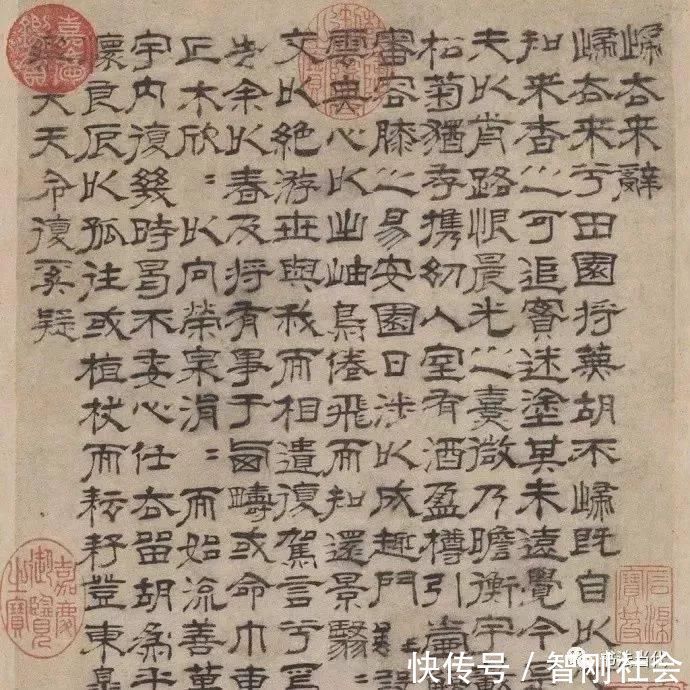 歸去來辭
歸去來兮田園將蕪胡不歸既自以
知來者之可追實迷塗其未遠覺今
夫以前路恨晨光之熹微乃瞻衡宇
松菊猶存携幼入室有酒盈樽引壺
審容膝之易安園日涉以成趣門雖設
雲無心以出岫鳥倦飛而知還景翳
交以絕游世與我而相遺復駕言兮焉
告余以春及將有事于西疇或命巾車
丘木欣〻以向榮泉涓〻而始流善萬
宇內復幾時曷不委心任去留胡為乎
懷良辰以孤往或植杖而耘耔登東皋
樂夫天命復奚疑
嘉慶御覽之寶
快传号 / 智刚社会